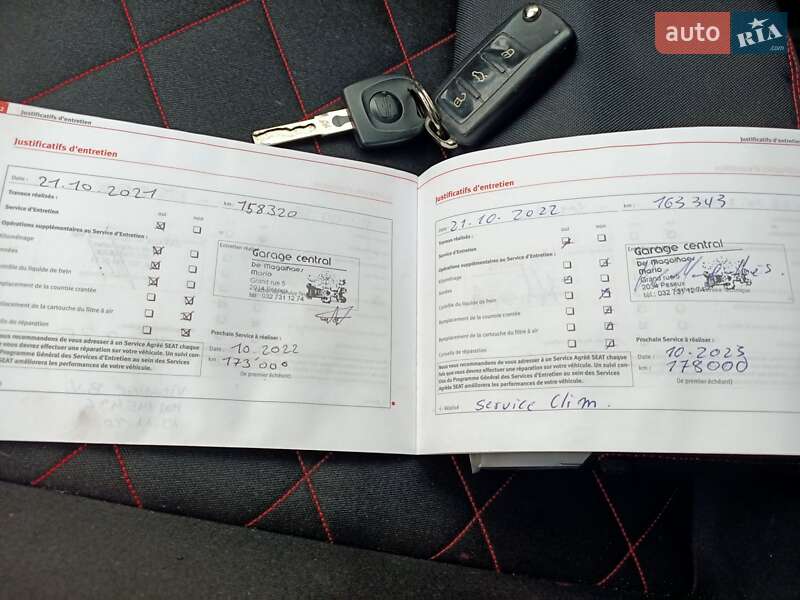 auto RIA .com
Justificatifs d'entretien
Justificatifs d'entretien
Date : 21.10.2021
km : 158320
Travaux réalisés :
oui non
Service d'Entretien
Opérations supplémentaires au Service d'Entretien :
Kilométrage
Contrôle du liquide de frein
Remplacement de la courroie crantée
Remplacement de la cartouche du filtre à air
de réparation
Entretien réalisé
Garage central
De Magalhaes
Mario
Grand rue 5
2034 Peseux
tél.: 032 731 12 74
Prochain Service à réaliser :
Date : 10.2022
km : 173'000
(le premier échéant)
Nous vous recommandons de vous adresser à un Service Agréé SEAT chaque
fois que vous devrez effectuer une réparation sur votre véhicule. Un suivi con-
Programme Général des Services d'Entretien au sein des Services
SEAT améliorera les performances de votre véhicule.
Justificatifs d'entretien
Justificatifs d'entretien
Date 21.10.2022
km : 163343
Travaux réalisés :
oui non
Service d'Entretien
Opérations supplémentaires au Service d'Entretien :
Kilométrage
Contrôle du liquide de frein
Remplacement de la courroie crantée
Remplacement de la cartouche du filtre à air
de réparation
Garage central
De Magalhaes
Mario
Grand rue 5
2034 Peseux
tél.: 032 731 12 74
Prochain Service à réaliser :
Date : 10.2023
km : 178000
(le premier échéant)
Nous vous recommandons de vous adresser à un Service Agréé SEAT chaque
fois que vous devrez effectuer une réparation sur votre véhicule. Un suivi con-
du Programme Général des Services d'Entretien au sein des Services
Agréés SEAT améliorera les performances de votre véhicule.
service Clim.